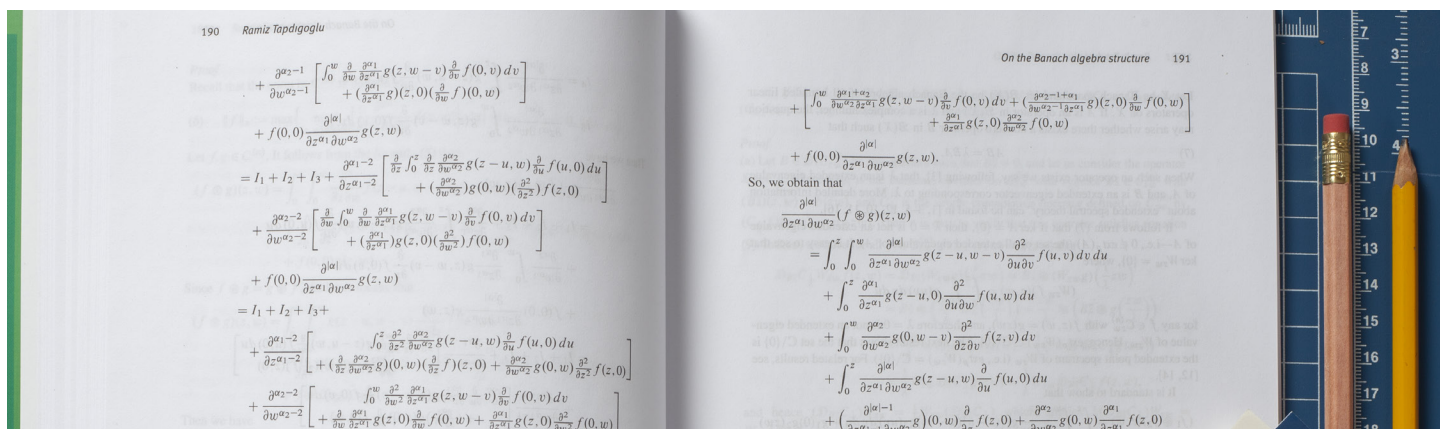 190 Ramiz Tapdıgoglu
+ \frac{\partial^{\alpha_2-1}}{\partial w^{\alpha_2-1}} [ \int_0^w \frac{\partial}{\partial w} \frac{\partial^{\alpha_1}}{\partial z^{\alpha_1}} g(z, w − v) \frac{\partial}{\partial v} f(0, v) dv
+ (\frac{\partial^{\alpha_1}}{\partial z^{\alpha_1}} g)(z, 0)(\frac{\partial}{\partial w} f)(0, w) ]
+ f(0, 0) \frac{\partial^{|\alpha|}}{\partial z^{\alpha_1} \partial w^{\alpha_2}} g(z, w)
= I_1 + I_2 + I_3 + \frac{\partial^{\alpha_1-2}}{\partial z^{\alpha_1-2}} [ \frac{\partial}{\partial z} \int_0^z \frac{\partial}{\partial z} \frac{\partial^{\alpha_2}}{\partial w^{\alpha_2}} g(z − u, w) \frac{\partial}{\partial u} f(u, 0) du
+ (\frac{\partial^{\alpha_2}}{\partial w^{\alpha_2}}) g(0, w)(\frac{\partial^2}{\partial z^2}) f(z, 0) ]
+ \frac{\partial^{\alpha_2-2}}{\partial w^{\alpha_2-2}} [ \frac{\partial}{\partial w} \int_0^w \frac{\partial}{\partial w} \frac{\partial^{\alpha_1}}{\partial z^{\alpha_1}} g(z, w − v) \frac{\partial}{\partial v} f(0, v) dv
+ (\frac{\partial^{\alpha_1}}{\partial z^{\alpha_1}}) g(z, 0)(\frac{\partial^2}{\partial w^2}) f(0, w) ]
+ f(0, 0) \frac{\partial^{|\alpha|}}{\partial z^{\alpha_1} \partial w^{\alpha_2}} g(z, w)
= I_1 + I_2 + I_3+
+ \frac{\partial^{\alpha_1-2}}{\partial z^{\alpha_1-2}} [ \int_0^z \frac{\partial^2}{\partial z^2} \frac{\partial^{\alpha_2}}{\partial w^{\alpha_2}} g(z − u, w) \frac{\partial}{\partial u} f(u, 0) du
+ (\frac{\partial}{\partial z} \frac{\partial^{\alpha_2}}{\partial w^{\alpha_2}} g)(0, w)(\frac{\partial}{\partial z} f)(z, 0) + \frac{\partial^{\alpha_2}}{\partial w^{\alpha_2}} g(0, w) \frac{\partial^2}{\partial z^2} f(z, 0) ]
+ \frac{\partial^{\alpha_2-2}}{\partial w^{\alpha_2-2}} [ \int_0^w \frac{\partial^2}{\partial w^2} \frac{\partial^{\alpha_1}}{\partial z^{\alpha_1}} g(z, w − v) \frac{\partial}{\partial v} f(0, v) dv
+ \frac{\partial}{\partial w} \frac{\partial^{\alpha_1}}{\partial z^{\alpha_1}} g(z, 0) \frac{\partial}{\partial w} f(0, w) + \frac{\partial^{\alpha_1}}{\partial z^{\alpha_1}} g(z, 0) \frac{\partial^2}{\partial w^2} f(0, w) ]
On the Banach algebra structure 191
+ [ \int_0^w \frac{\partial^{\alpha_1+\alpha_2}}{\partial w^{\alpha_2} \partial z^{\alpha_1}} g(z, w − v) \frac{\partial}{\partial v} f(0, v) dv + (\frac{\partial^{\alpha_2-1+\alpha_1}}{\partial w^{\alpha_2-1} \partial z^{\alpha_1}} g)(z, 0) \frac{\partial}{\partial w} f(0, w)
+ \frac{\partial^{\alpha_1}}{\partial z^{\alpha_1}} g(z, 0) \frac{\partial^{\alpha_2}}{\partial w^{\alpha_2}} f(0, w) ]
+ f(0, 0) \frac{\partial^{|\alpha|}}{\partial z^{\alpha_1} \partial w^{\alpha_2}} g(z, w).
So, we obtain that
\frac{\partial^{|\alpha|}}{\partial z^{\alpha_1} \partial w^{\alpha_2}} (f ⊛ g)(z, w)
= \int_0^z \int_0^w \frac{\partial^{|\alpha|}}{\partial z^{\alpha_1} \partial w^{\alpha_2}} g(z − u, w − v) \frac{\partial^2}{\partial u \partial v} f(u, v) dv du
+ \int_0^z \frac{\partial^{\alpha_1}}{\partial z^{\alpha_1}} g(z − u, 0) \frac{\partial^2}{\partial u \partial w} f(u, w) du
+ \int_0^w \frac{\partial^{\alpha_2}}{\partial w^{\alpha_2}} g(0, w − v) \frac{\partial^2}{\partial z \partial v} f(z, v) dv
+ \int_0^z \frac{\partial^{|\alpha|}}{\partial z^{\alpha_1} \partial w^{\alpha_2}} g(z − u, w) \frac{\partial}{\partial u} f(u, 0) du
+ (\frac{\partial^{|\alpha|-1}}{\partial z^{\alpha_1-1} \partial w^{\alpha_2}} g)(0, w) \frac{\partial}{\partial z} f(z, 0) + \frac{\partial^{\alpha_2}}{\partial w^{\alpha_2}} g(0, w) \frac{\partial^{\alpha_1}}{\partial z^{\alpha_1}} f(z, 0)
7
8
9
10
11
12
13
14
15
16
17
18
3
4